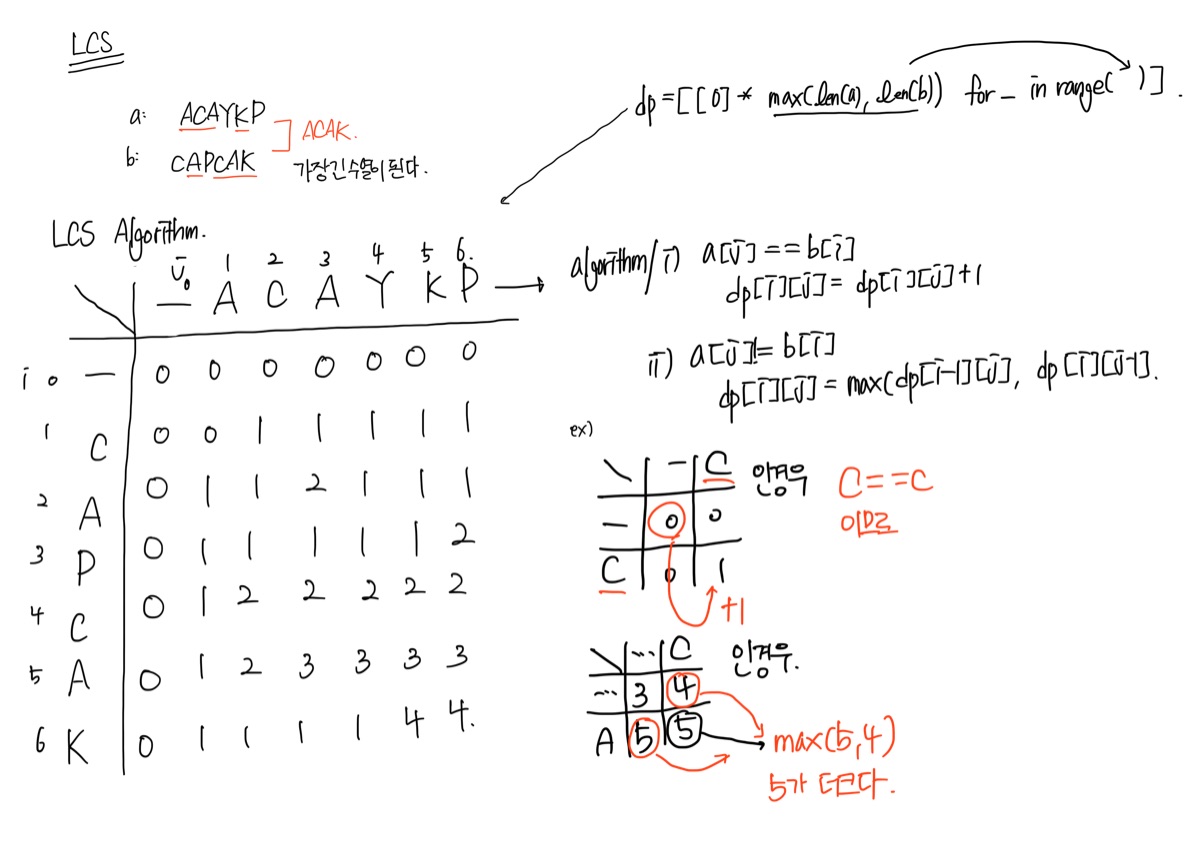 LCS
dp=[[0]* max(len(a), len(b)) for _ in range( " )].
a: ACAYKP
ACAK.
b: CAPCAK
가장긴수열이된다.
LCS Algorithm.
j 0 1 2 3 4 5 6.
— A C A Y K P
i 0 — 0 0 0 0 0 0 0
1 C 0 0 1 1 1 1 1
2 A 0 1 1 2 1 1 1
3 P 0 1 1 1 1 1 2
4 C 0 1 2 2 2 2 2
5 A 0 1 2 3 3 3 3
6 K 0 1 1 1 1 4 4.
algorithm/ i) a[j]==b[i]
dp[i][j]= dp[i][j]+1
ii) a[j]!=b[i]
dp[i][j]=max(dp[i-1][j], dp[i][j-1].
ex)
\ — C 인경우
— 0 0
C 0 1
C==C
이므로
+1
\ ... C 인경우.
... 3 4
A 5 5
max(5,4)
5가 더크다.